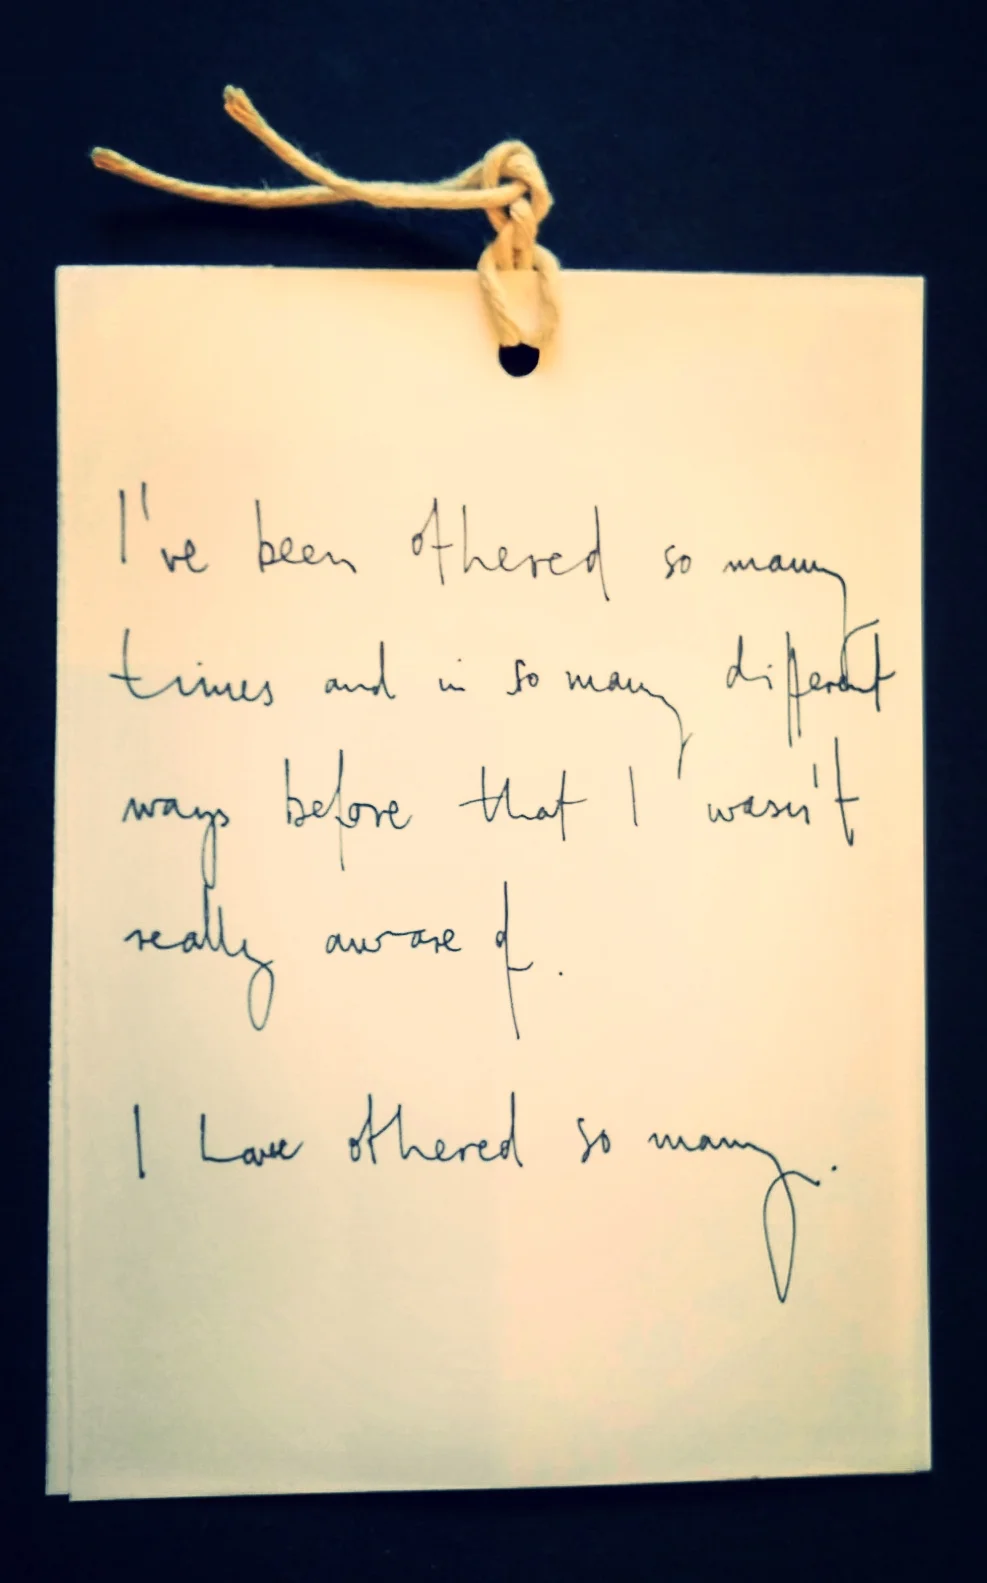 I've been othered so many
times and in so many different
ways before that I wasn't
really aware of.
I have othered so many.